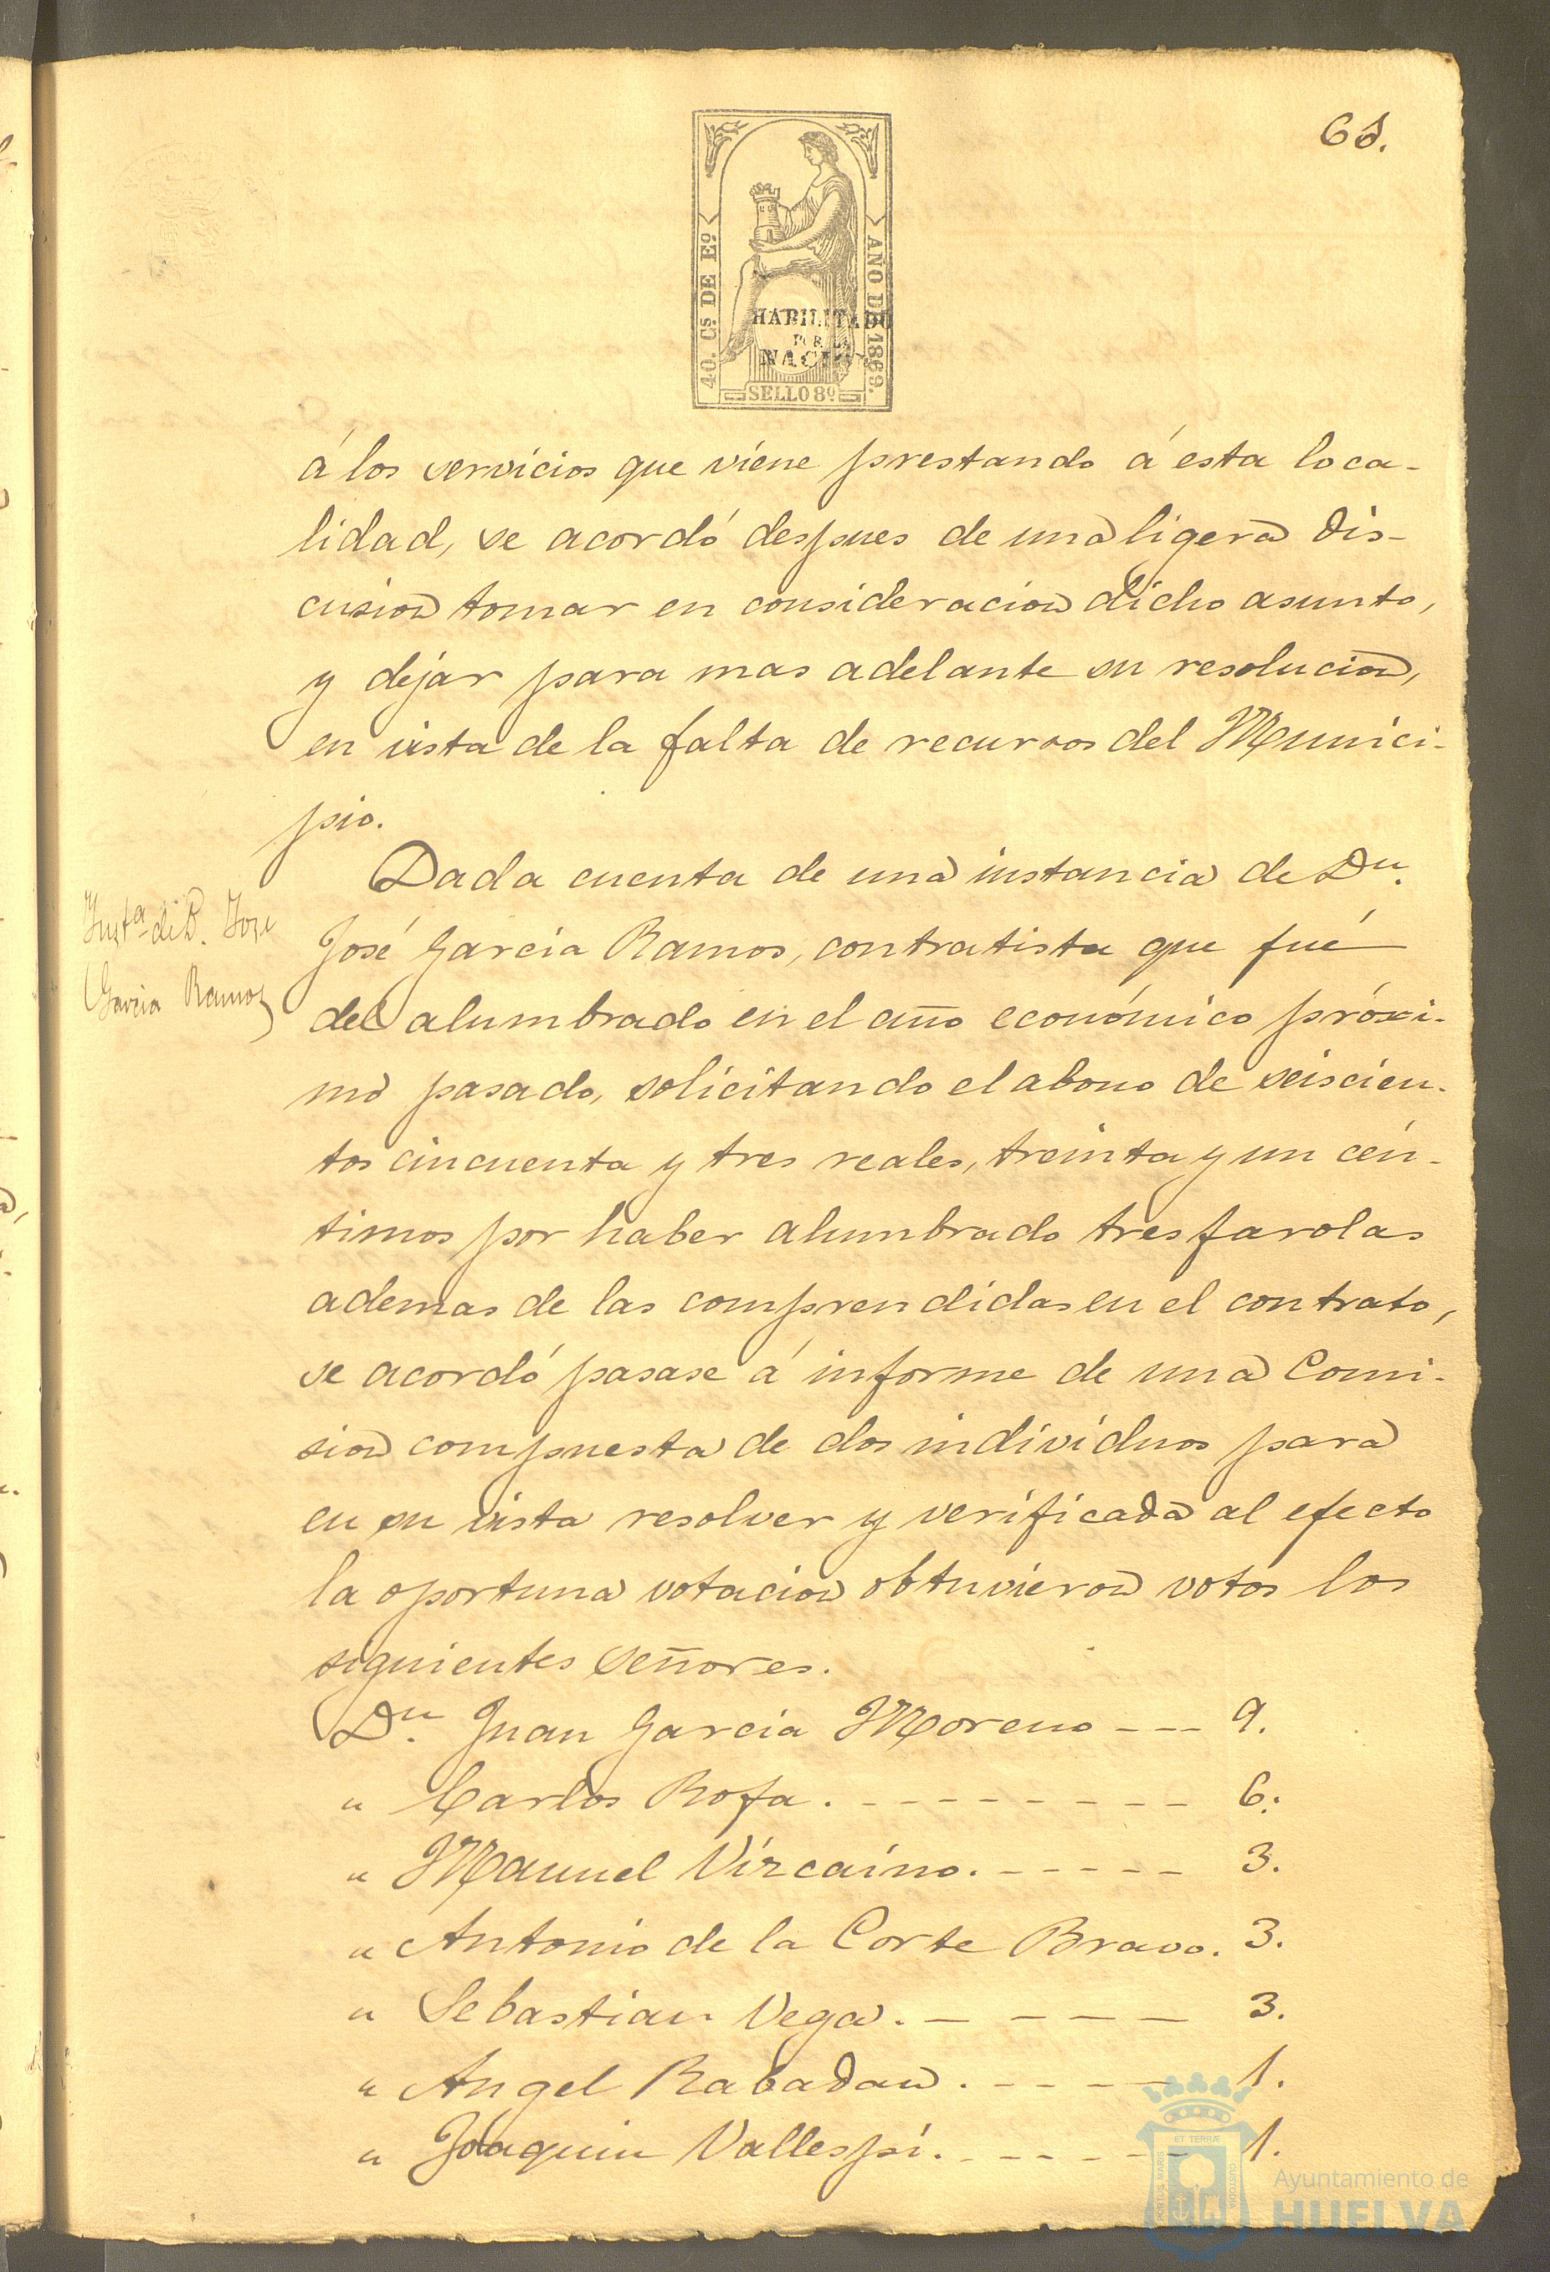 68.
40. Cs DE Eo
AÑO DE 1869.
HABILITADO
POR LA
NACION
SELLO 8º
á los servicios que viene prestando á esta loca-
lidad, se acordó despues de una ligera dis-
cusion tomar en consideracion dicho asunto,
y dejar para mas adelante su resolucion,
en vista de la falta de recursos del Munici-
pio.
Insta de D. Jose
Garcia Ramos
Dada cuenta de una instancia de Dn.
José Garcia Ramos, contratista que fué
del alumbrado en el año económico próxi-
mo pasado, solicitando el abono de seiscien-
tos cincuenta y tres reales, treinta y un cén-
timos por haber alumbrado tres farolas
ademas de las comprendidas en el contrato,
se acordó pasase á informe de una Comi-
sion compuesta de dos individuos para
en su vista resolver y verificada al efecto
la oportuna votacion obtuvieron votos los
siguientes señores.
Dn. Juan Garcia Moreno --- 9.
" Carlos Rofa. --------- 6.
" Manuel Vizcaino. ----- 3.
" Antonio de la Corte Bravo. 3.
" Sebastian Vega. ----- 3.
" Angel Rabadan. ----- 1.
" Joaquin Vallespí. ------ 1.
Ayuntamiento de
HUELVA